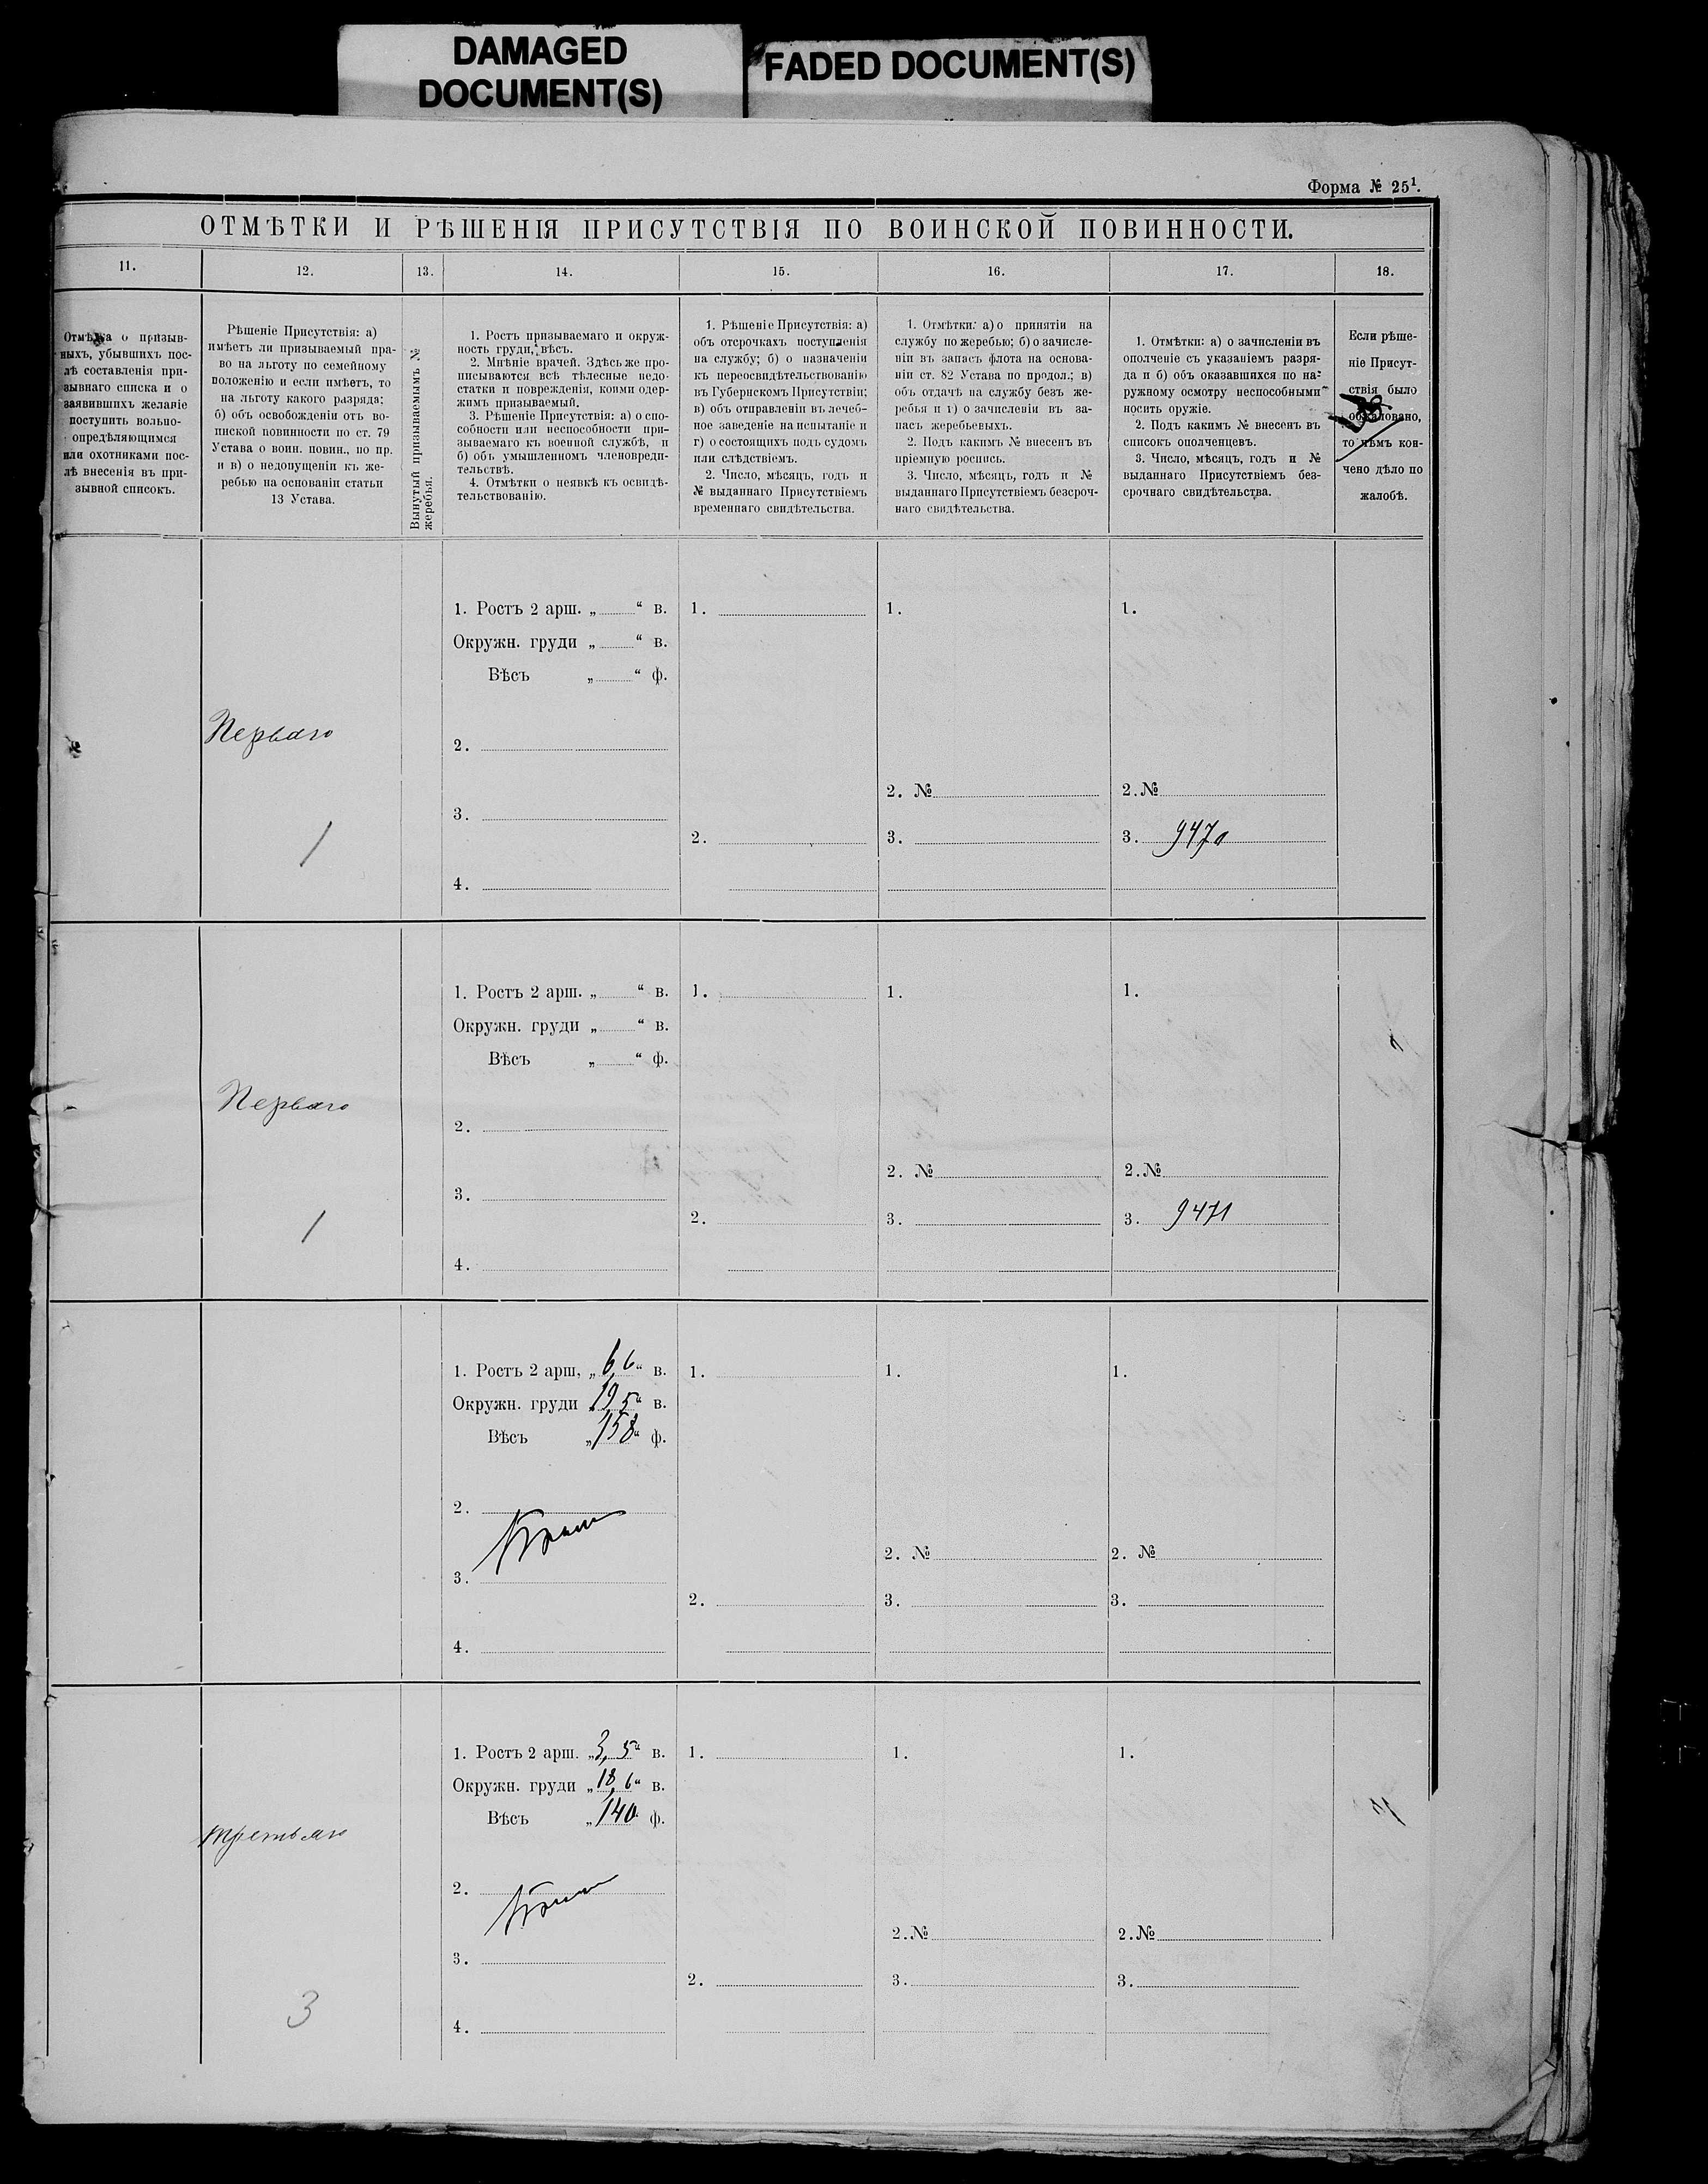 DAMAGED
DOCUMENT(S)
FADED DOCUMENT(S)
Форма № 25¹.
ОТМѢТКИ И РѢШЕНІЯ ПРИСУТСТВІЯ ПО ВОИНСКОЙ ПОВИННОСТИ.
11.
12.
13.
14.
15.
16.
17.
18.
Отмѣтка о призыв-
ныхъ, убывшихъ пос-
лѣ составленія при-
зывнаго списка и о
заявившихъ желаніе
поступить вольно-
опредѣляющимся
или охотниками пос-
лѣ внесенія въ при-
зывной списокъ.
Рѣшеніе Присутствія: а)
имѣетъ ли призываемый пра-
во на льготу по семейному
положенію и если имѣетъ, то
на льготу какого разряда;
б) объ освобожденіи отъ во-
инской повинности по ст. 79
Устава о воин. повин., по пр.
и в) о недопущеніи къ же-
ребью на основаніи статьи
13 Устава.
Вынутый призываемымъ №
жеребья.
1. Ростъ призываемаго и окруж-
ность груди, вѣсъ.
2. Мнѣніе врачей. Здѣсь же про-
писываются всѣ тѣлесные недо-
статки и поврежденія, коими одер-
жимъ призываемый.
3. Рѣшеніе Присутствія: а) о спо-
собности или неспособности при-
зываемаго къ военной службѣ, и
б) объ умышленномъ членовреди-
тельствѣ.
4. Отмѣтки о неявкѣ къ освидѣ-
тельствованію.
1. Рѣшеніе Присутствія: а)
объ отсрочкахъ поступленія
на службу; б) о назначеніи
къ переосвидѣтельствованію
въ Губернскомъ Присутствіи;
в) объ отправленіи въ лечеб-
ное заведеніе на испытаніе и
г) о состоящихъ подъ судомъ
или слѣдствіемъ.
2. Число, мѣсяцъ, годъ и
№ выданнаго Присутствіемъ
временнаго свидѣтельства.
1. Отмѣтки: а) о принятіи на
службу по жеребью; б) о зачисле-
ніи въ запасъ флота на основа-
ніи ст. 82 Устава по продол.; в)
объ отдачѣ на службу безъ же-
ребья и г) о зачисленіи въ за-
пасъ жеребьевыхъ.
2. Подъ какимъ № внесенъ въ
пріемную роспись.
3. Число, мѣсяцъ, годъ и №
выданнаго Присутствіемъ безсроч-
наго свидѣтельства.
1. Отмѣтки: а) о зачисленіи въ
ополченіе съ указаніемъ разря-
да и б) объ оказавшихся по на-
ружному осмотру неспособными
носить оружіе.
2. Подъ какимъ № внесенъ въ
списокъ ополченцевъ.
3. Число, мѣсяцъ, годъ и №
выданнаго Присутствіемъ без-
срочнаго свидѣтельства.
Если рѣше-
ніе Присут-
ствія было
обжаловано,
то чѣмъ кон-
чено дѣло по
жалобѣ.
1. Ростъ 2 арш. „ “ в.
Окружн. груди „ “ в.
Вѣсъ „ “ ф.
1.
1.
1.
Перваго
2.
2. №
2. №
3.
2.
3.
3. 9470
1
4.
1. Ростъ 2 арш. „ “ в.
Окружн. груди „ “ в.
Вѣсъ „ “ ф.
1.
1.
1.
Перваго
2.
2. №
2. №
3.
2.
3.
3. 9471
1
4.
1. Ростъ 2 арш. „ 6,6 “ в.
Окружн. груди 19,5 “ в.
Вѣсъ „ 158 “ ф.
1.
1.
1.
2.
2. №
2. №
3.
2.
3.
3.
4.
1. Ростъ 2 арш. „ 3,5 “ в.
Окружн. груди „ 18,6 “ в.
Вѣсъ „ 140 ф.
1.
1.
1.
третьяго
2.
2. №
2. №
3.
2.
3.
3.
3
4.